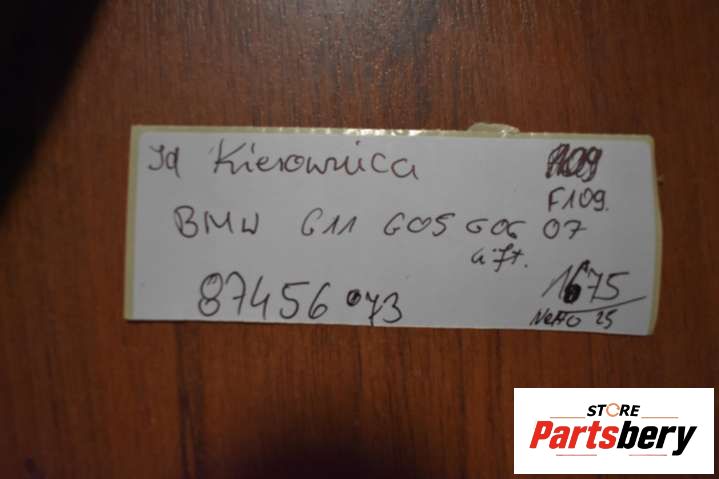 Id Kierownica
F109.
BMW G11 G05 G06 07
lift.
87456 073
1675
Netto 25
STORE
Partsbery